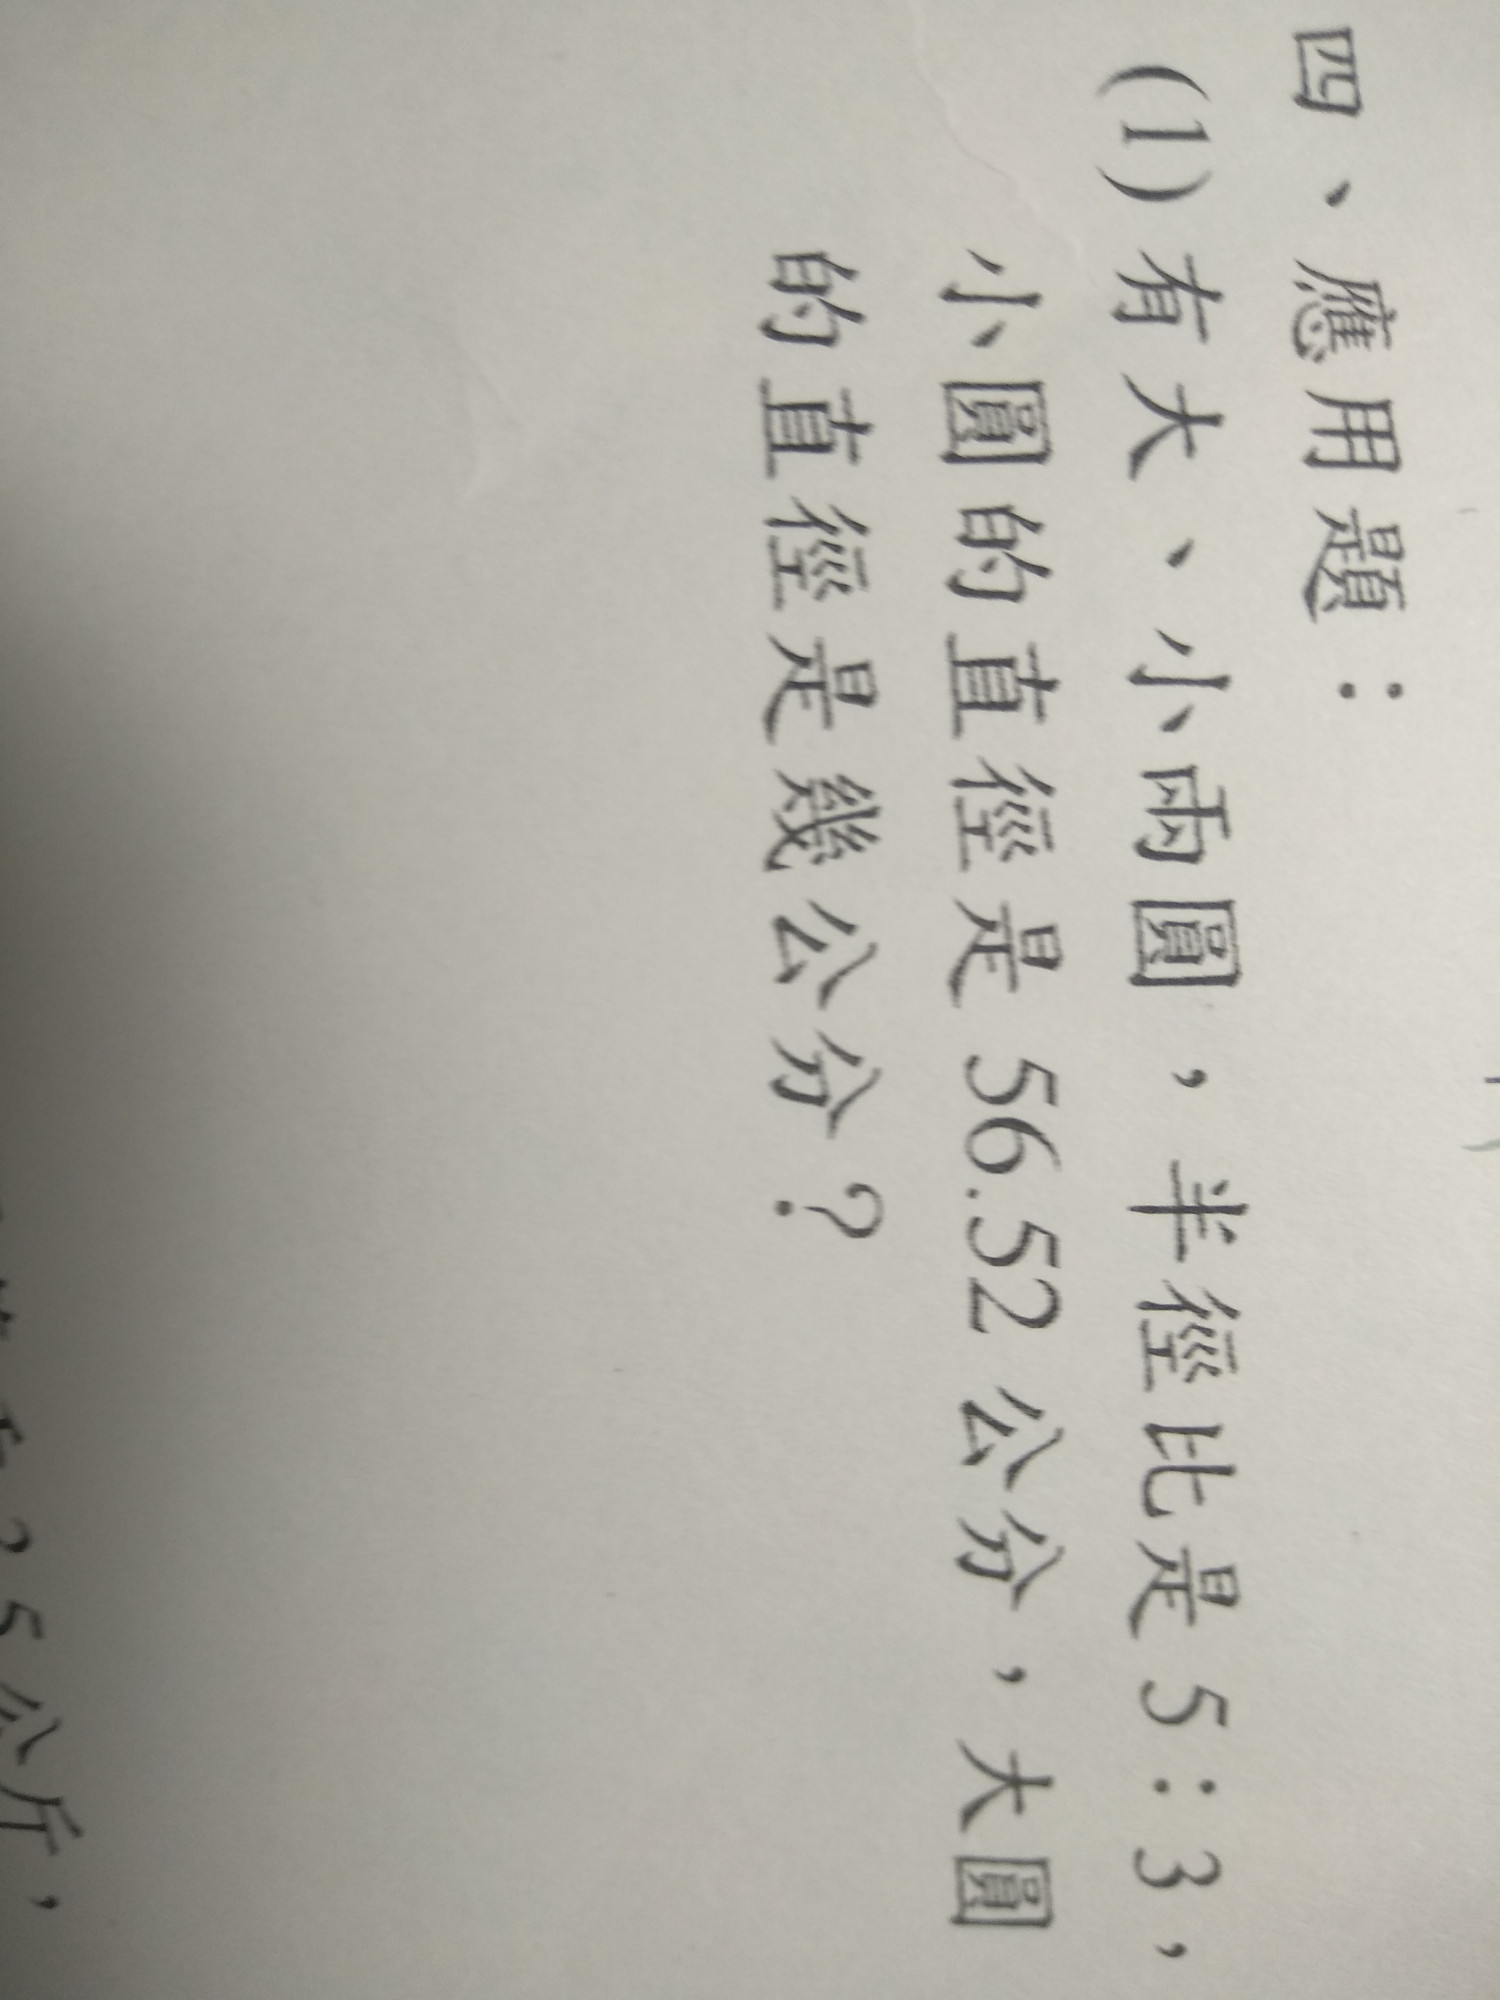 四、應用題：
(1)有大、小兩圓，半徑比是5：3，
小圓的直徑是56.52公分，大圓
的直徑是幾公分？
25公斤，